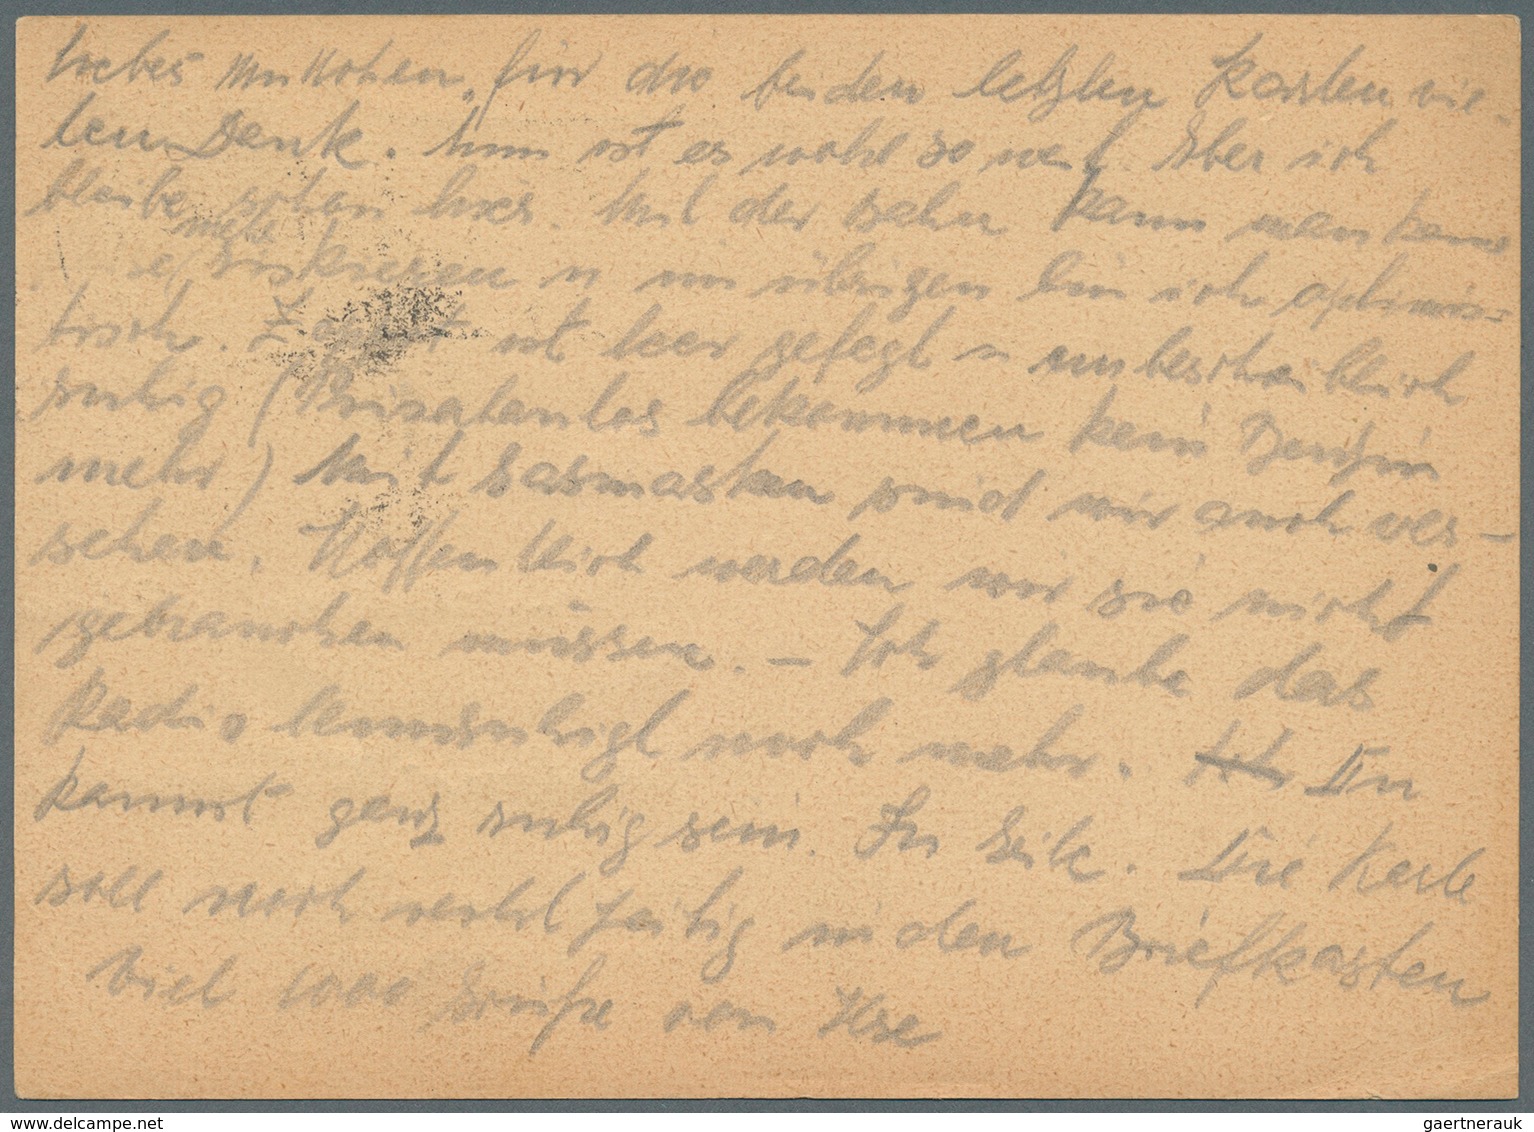 Liebes Muttchen, für die beiden letzten Karten vie-
len Dank. Nun ist es wohl so weit. Aber ich
bleibe schon hier. Mit der Bahn kann man kaum
mehr
es riskieren u im übrigen bin ich optimis-
tisch. ist leer gefegt u unbeschreiblich
ruhig (Privatautos bekommen kein Benzin
mehr) Mit Gasmasken sind wir auch ver-
sehen. Hoffentlich werden wir sie nicht
gebrauchen müssen. – Ich glaube das
Radio beunruhigt noch mehr. Ich Du
kannst ganz ruhig sein. In Eile. Die Karte
soll noch rechtzeitig in den Briefkasten
Viel 1000 Grüße von Ilse
gaertnerauk@delcampe.net